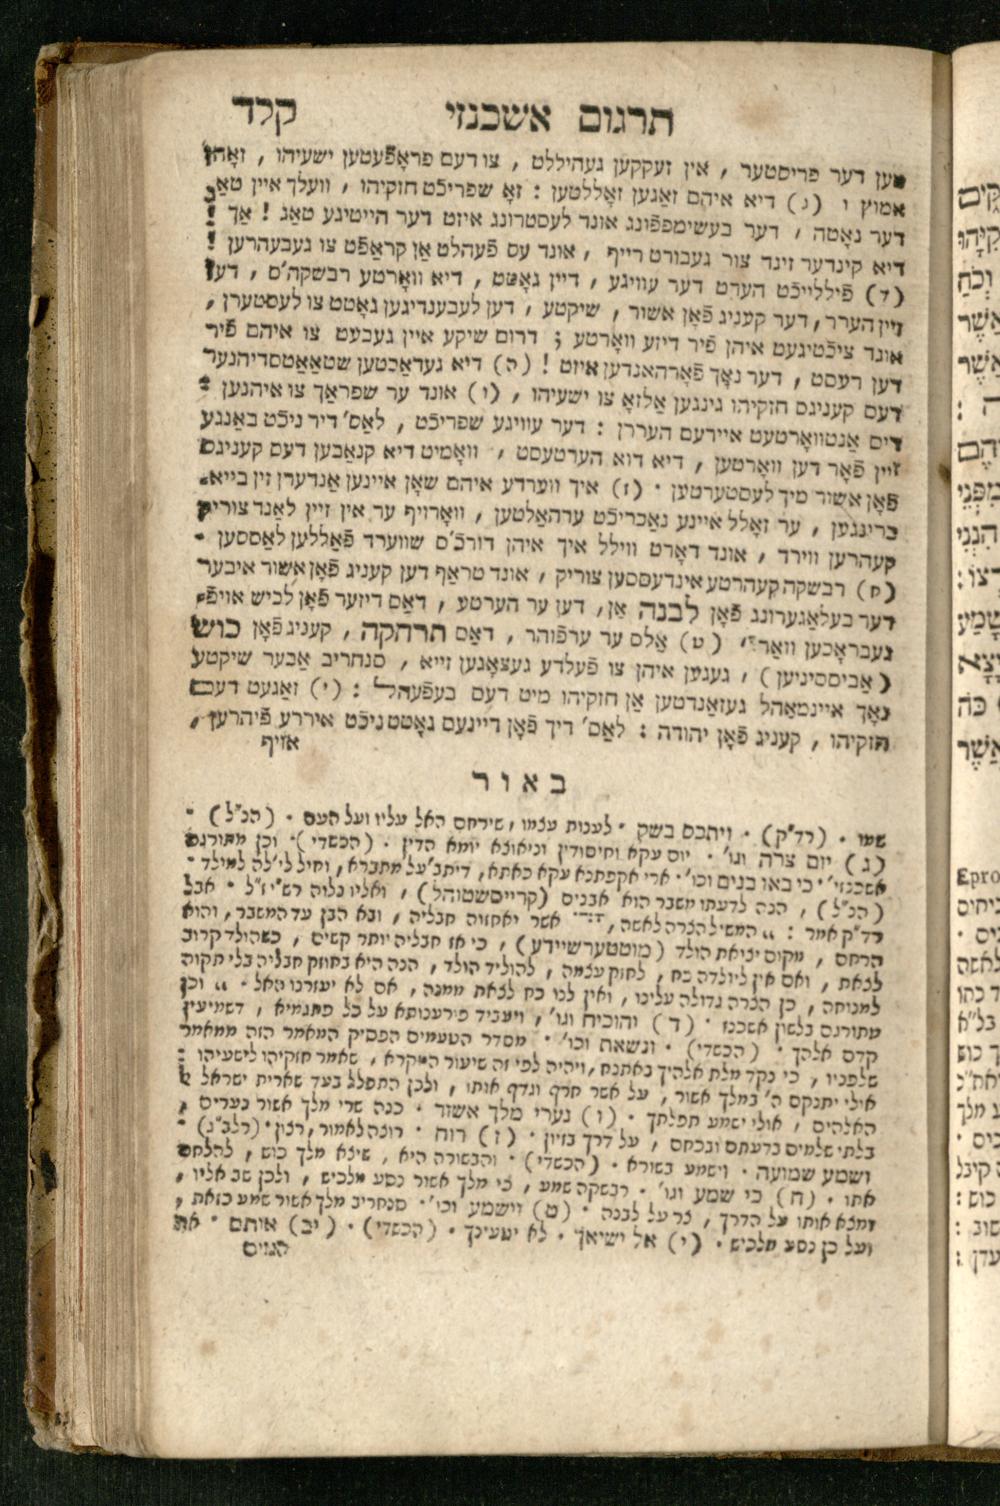 תרגום אשכנזי קלד
טען דער פריסטער , אין זעקקען געהיללט , צו דעם פראָפֿעטען ישעיהו , זאָהן
אמוץ ו (ג) דיא איהם זאַגען זאָללטען : זאָ שפריכֿט חזקיהו , וועלך איין טאַג
דער נאָטה , דער בעשימפפֿונג אונד לעסטרונג איזט דער הייטיגע טאַג ! אַך !
דיא קינדער זינד צור געבורט רייף , אונד עס פֿעהלט אַן קראַפֿט צו געבעהרען !
(ד) פֿיללייכֿט הערט דער עוויגע , דיין גאָטט , דיא וואָרטע רבשקה'ס , דען
זיין הערר , דער קעניג פֿאָן אשור , שיקטע , דען לעבענדיגען גאָטט צו לעסטערן ,
אונד ציכֿטיגעט איהן פֿיר דיזע וואָרטע ; דרום שיקע איין געבעט צו איהם פֿיר
דען רעסט , דער נאָך פֿאָרהאנדען איזט ! (ה) דיא געדאַכטען שטאַאַטסדיהנער
דעם קעניגס חזקיהו גינגען אַלזאָ צו ישעיהו , (ו) אונד ער שפראַך צו איהנען :
דיס אַנטוואָרטעט אייערעם העררן : דער עוויגע שפריכֿט , לאַס' דיר ניכֿט באַנגע
זיין פֿאָר דען וואָרטען , דיא דוא הערטעסט , וואָמיט דיא קנאַבען דעס קעניגס
פֿאָן אשור מיך לעסטערטען . (ז) איך ווערדע איהם שאָן איינען אַנדערן זין בייא-
ברינגען , ער זאָלל איינע נאַכריכֿט ערהאַלטען , וואָרויף ער אין זיין לאַנד צוריק
קעהרען ווירד , אונד דאָרט ווילל איך איהן דורכֿ'ס שווערד פֿאַללען לאַססען .
(ח) רבשקה קעהרטע אינדעססען צוריק , אונד טראַף דען קעניג פֿאָן אשור איבער
דער בעלאַגערונג פֿאָן לבנה אן, דען ער הערטע , דאַס דיזער פֿאָן לכיש אויפֿ-
געבראָכען וואַר . (ט) אַלס ער ערפֿוהר , דאַס תרהקה , קעניג פֿאָן כוש
(אַביססיניען) , געגען איהן צו פֿעלדע געצאָגען זייא , סנחריב אַבער שיקטע
נאָך איינמאַהל געזאַנדטען אַן חזקיהו מיט דעם בעפֿעהל : (י) זאַגעט דעם
חזקיהו , קעניג פֿאָן יהודה : לאַס' דיך פֿאָן דיינעם גאָטט ניכֿט איררע פֿיהרען ,
אויף
באור
שמו . (רד"ק) . ויתכס בשק . לענות עצמו , שירחם האל עליו ועל העם . (הנ"ל) .
(ג) יום צרה וגו' . יום עקא וחיסודין וניאוצא יומא הדין . (הכשדי) . וכן מתורגם
אשכנזי . כי באו בנים וכו' . ארי אקפתנא עקא כאתא , דיתב' על מתברא , וחיל לי'לה למילד .
(הנ"ל) , הנה לדעתו משבר הוא אבנים (קרייסשטוהל) , ואליו נלוה רש"י ז"ל . אבל
רד"ק אמר : המשיל הצרה לאשה , אשר יאחזוה חבליה , ובא הבן עד המשבר , והוא
הרחם , מקום יציאת הולד (מוטטערשיידע) , כי אז חבליה יותר קשים , כשהולד קרוב
לצאת , ואם אין ליולדה כח , לחזק עצמה , להוליד הולד , הנה היא בחוזק חבליה בלי תקוה
למנוחה , כן הצרה גדולה עלינו , ואין לנו כח לצאת ממנה , אם לא יעזרנו האל . וכן
מתורגם בלשון אשכנז . (ד) והוכיח וגו' , ויעביד פורענותא על כל פתגמיא , דשמיעין
קדם אלהך . (הכשדי) . ונשאת וכו' . מסדר הטעמים הפסיק המאמר הזה ממאמר
שלפניו , כי נקד מלת אלהיך באתנח , ויהיה לפי זה שיעור המקרא , שאמר חזקיהו לישעיהו :
אולי יתנקם ה' במלך אשור , על אשר חרף וגדף אותו , ולכן התפלל בעד שארית ישראל
האלהים , אולי ישמע תפלתך . (ו) נערי מלך אשור . כנה שרי מלך אשור נערים ,
בלתי שלמים בדעתם ובכחם , על דרך בזיון . (ז) רוח . רוצה לאמור , רצון . (רלב"ג) .
ושמע שמועה . וישמע בשורא . (הכשדי) . והבשורה היא , שיצא מלך כוש , להלחם
אתו . (ח) כי שמע וגו' . רבשקה שמע , כי מלך אשור נסע מלכיש , ולכן שב אליו ,
ומצא אותו על הדרך , צר על לבנה . (ט) וישמע וכו' . סנחריב מלך אשור שמע כזאת ,
ועל כן נסע מלכיש . (י) אל ישיאך . לא יטעינך . (הכשדי) . (יב) אותם . את
הגוים